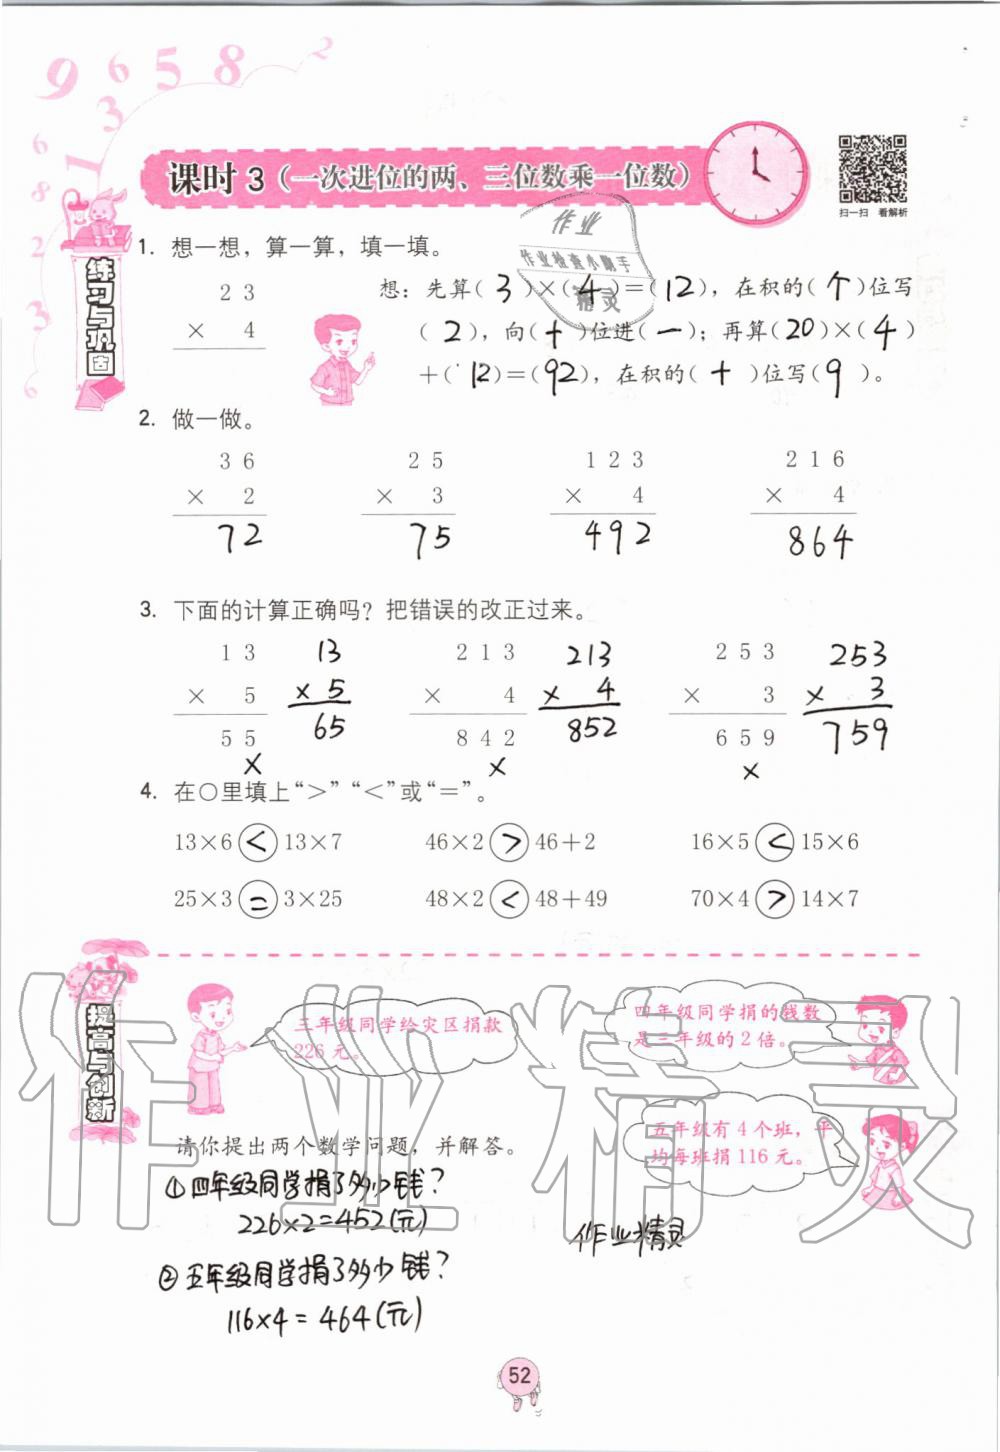 9 6 5 8 2
3
6
1
8
2
3
6
课时 3（一次进位的两、三位数乘一位数）
扫一扫 看解析
练习与巩固
作业
作业检查小助手
精灵
1. 想一想，算一算，填一填。
2 3
× 4
想：先算(3)×(4)=(12)，在积的(个)位写
(2)，向(十)位进(一)；再算(20)×(4)
+(12)=(92)，在积的(十)位写(9)。
2. 做一做。
3 6 2 5 1 2 3 2 1 6
× 2 × 3 × 4 × 4
72 75 492 864
3. 下面的计算正确吗？把错误的改正过来。
1 3 13 2 1 3 213 2 5 3 253
× 5 × 5 × 4 × 4 × 3 × 3
5 5 65 8 4 2 852 6 5 9 759
× × ×
4. 在○里填上“>”“<”或“=”。
13×6 < 13×7 46×2 > 46+2 16×5 < 15×6
25×3 = 3×25 48×2 < 48+49 70×4 > 14×7
提高与创新
三年级同学给灾区捐款
226 元。
四年级同学捐的钱数
是三年级的 2 倍。
五年级有 4 个班，平
均每班捐 116 元。
作业精灵
请你提出两个数学问题，并解答。
①四年级同学捐了多少钱？
226×2=452(元)
作业精灵
②五年级同学捐了多少钱？
116×4=464(元)
52